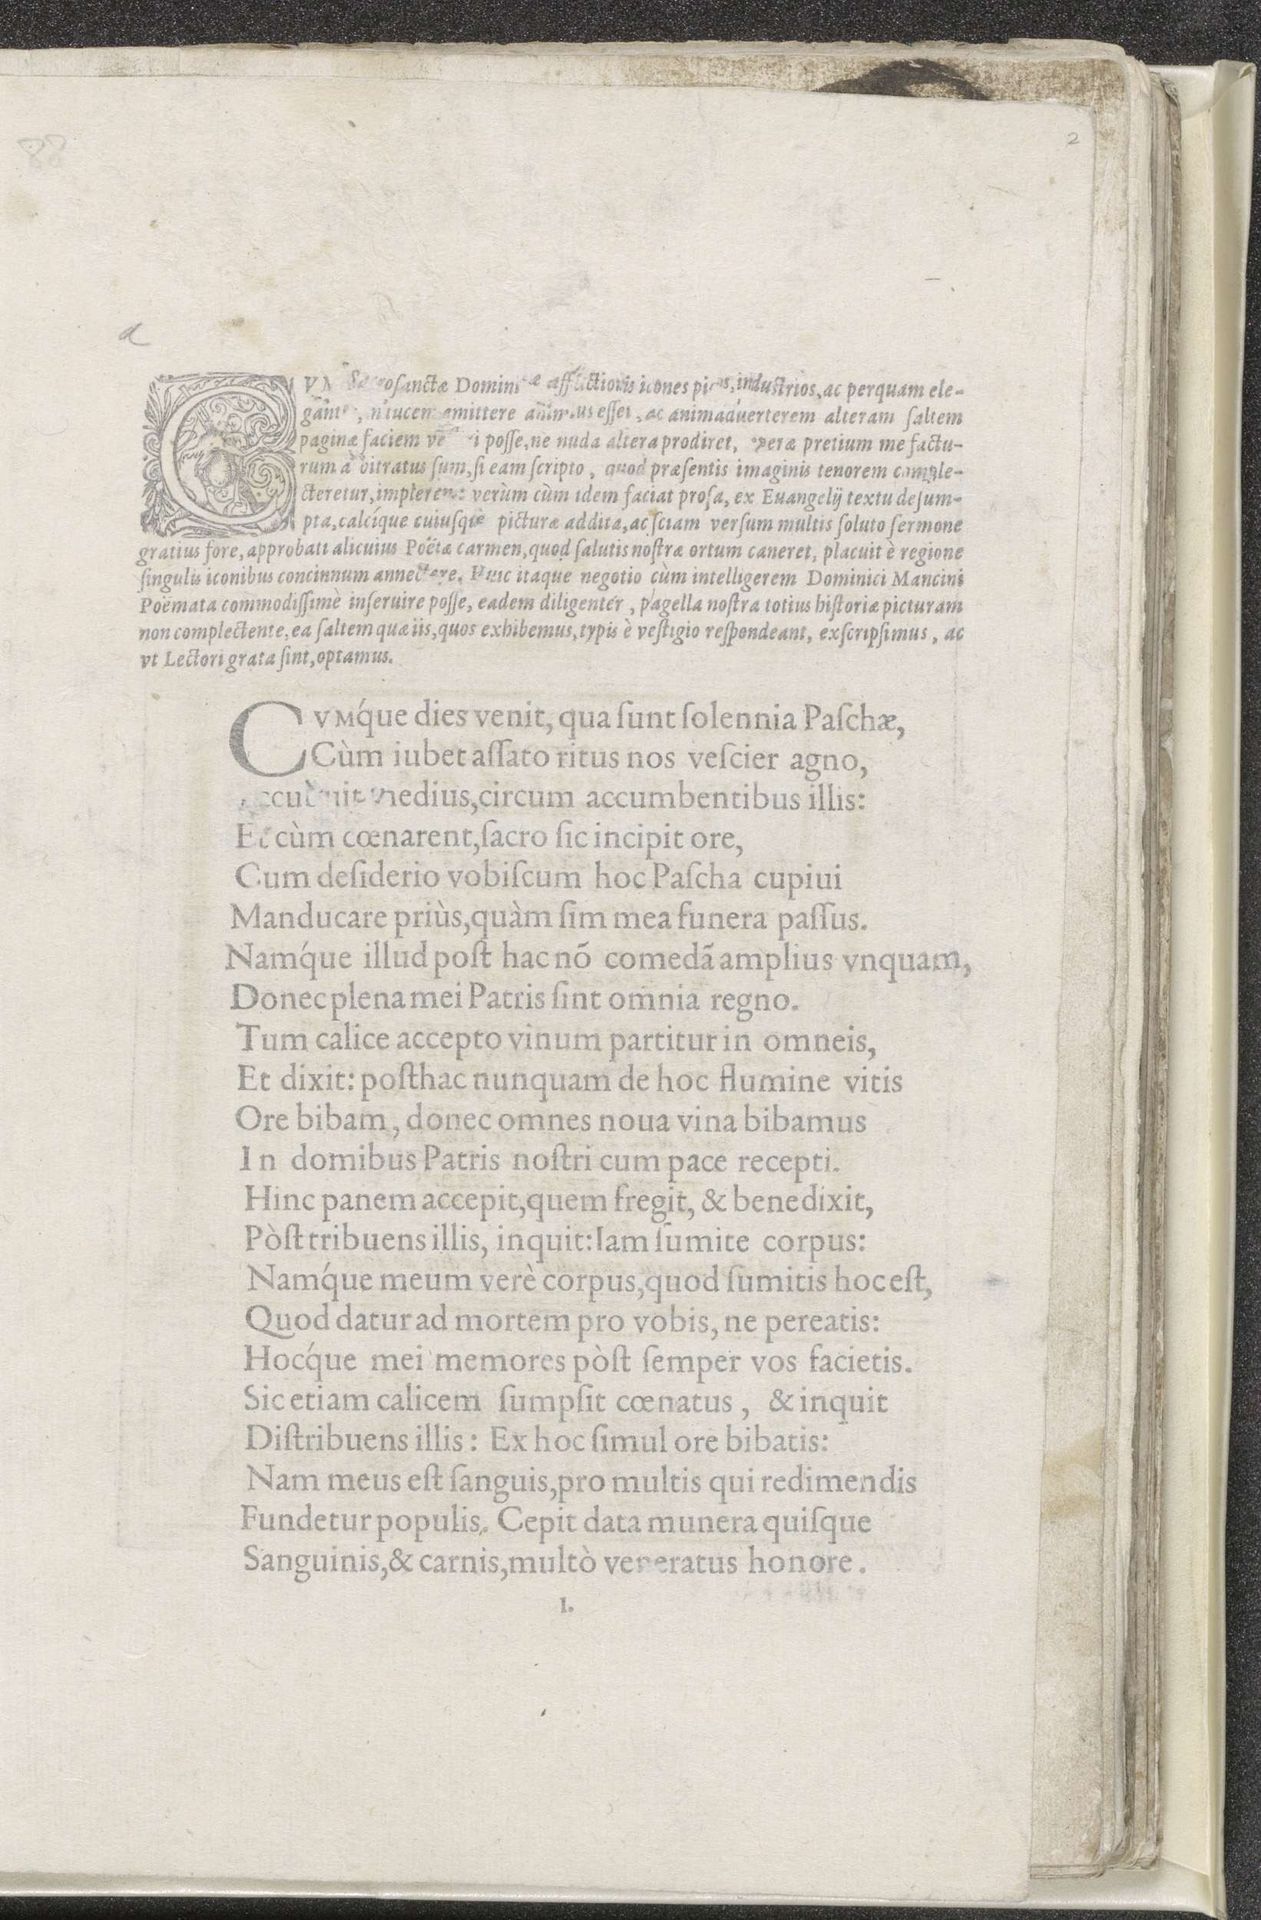 2
CVM Sacrosanctæ Dominicæ afflictionis icones pias, industrios, ac perquam ele-
gantes, in lucem emittere animus esset, ac animaduerterem alteram saltem
paginæ faciem posse, ne nuda altera prodiret, operæ pretium me factu-
rum arbitratus sum, si eam scripto, quod præsentis imaginis tenorem comple-
cteretur, implerem: verùm cùm idem faciat prosa, ex Euangelij textu desum-
pta, calcíque cuiusque picturæ addita, ac sciam versum multis soluto sermone
gratius fore, approbati alicuius Poëtæ carmen, quod salutis nostræ ortum caneret, placuit è regione
singulis iconibus concinnum annectere. Huic itaque negotio cùm intelligerem Dominici Mancini
Poëmata commodissimè inseruire posse, eadem diligenter, pagella nostra totius historiæ picturam
non complectente, ea saltem quæ iis, quos exhibemus, typis è vestigio respondeant, exscripsimus, ac
vt Lectori grata sint, optamus.
CVMq́ue dies venit, qua sunt solennia Paschæ,
Cùm iubet assato ritus nos vescier agno,
Accubuit medius, circum accumbentibus illis:
Et cùm cœnarent, sacro sic incipit ore,
Cum desiderio vobiscum hoc Pascha cupiui
Manducare priùs, quàm sim mea funera passus.
Namq́ue illud post hac nõ comedã amplius vnquam,
Donec plena mei Patris sint omnia regno.
Tum calice accepto vinum partitur in omneis,
Et dixit: posthac nunquam de hoc flumine vitis
Ore bibam, donec omnes noua vina bibamus
In domibus Patris nostri cum pace recepti.
Hinc panem accepit, quem fregit, & benedixit,
Pòst tribuens illis, inquit: Iam sumite corpus:
Namq́ue meum verè corpus, quod sumitis hoc est,
Quod datur ad mortem pro vobis, ne pereatis:
Hocq́ue mei memores pòst semper vos facietis.
Sic etiam calicem sumpsit cœnatus, & inquit
Distribuens illis: Ex hoc simul ore bibatis:
Nam meus est sanguis, pro multis qui redimendis
Fundetur populis. Cepit data munera quisque
Sanguinis, & carnis, multò veneratus honore.
I.